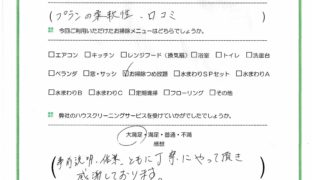 (プランの柔軟性・口コミ)
今回ご利用いただけたお掃除メニューはどちらでしょうか。
□エアコン □キッチン □レンジフード(換気扇) □浴室 □トイレ □洗面台
□ベランダ □窓・サッシ ☑お掃除つめ放題 □水まわりSPセット □水まわりA
□水まわりB □水まわりC □定期清掃 □フローリング □その他
弊社のハウスクリーニングサービスを受けていかがでしたでしょうか。
大満足・満足・普通・不満
感想
(事前説明、作業、ともに丁寧にやって頂き
感謝しております。)